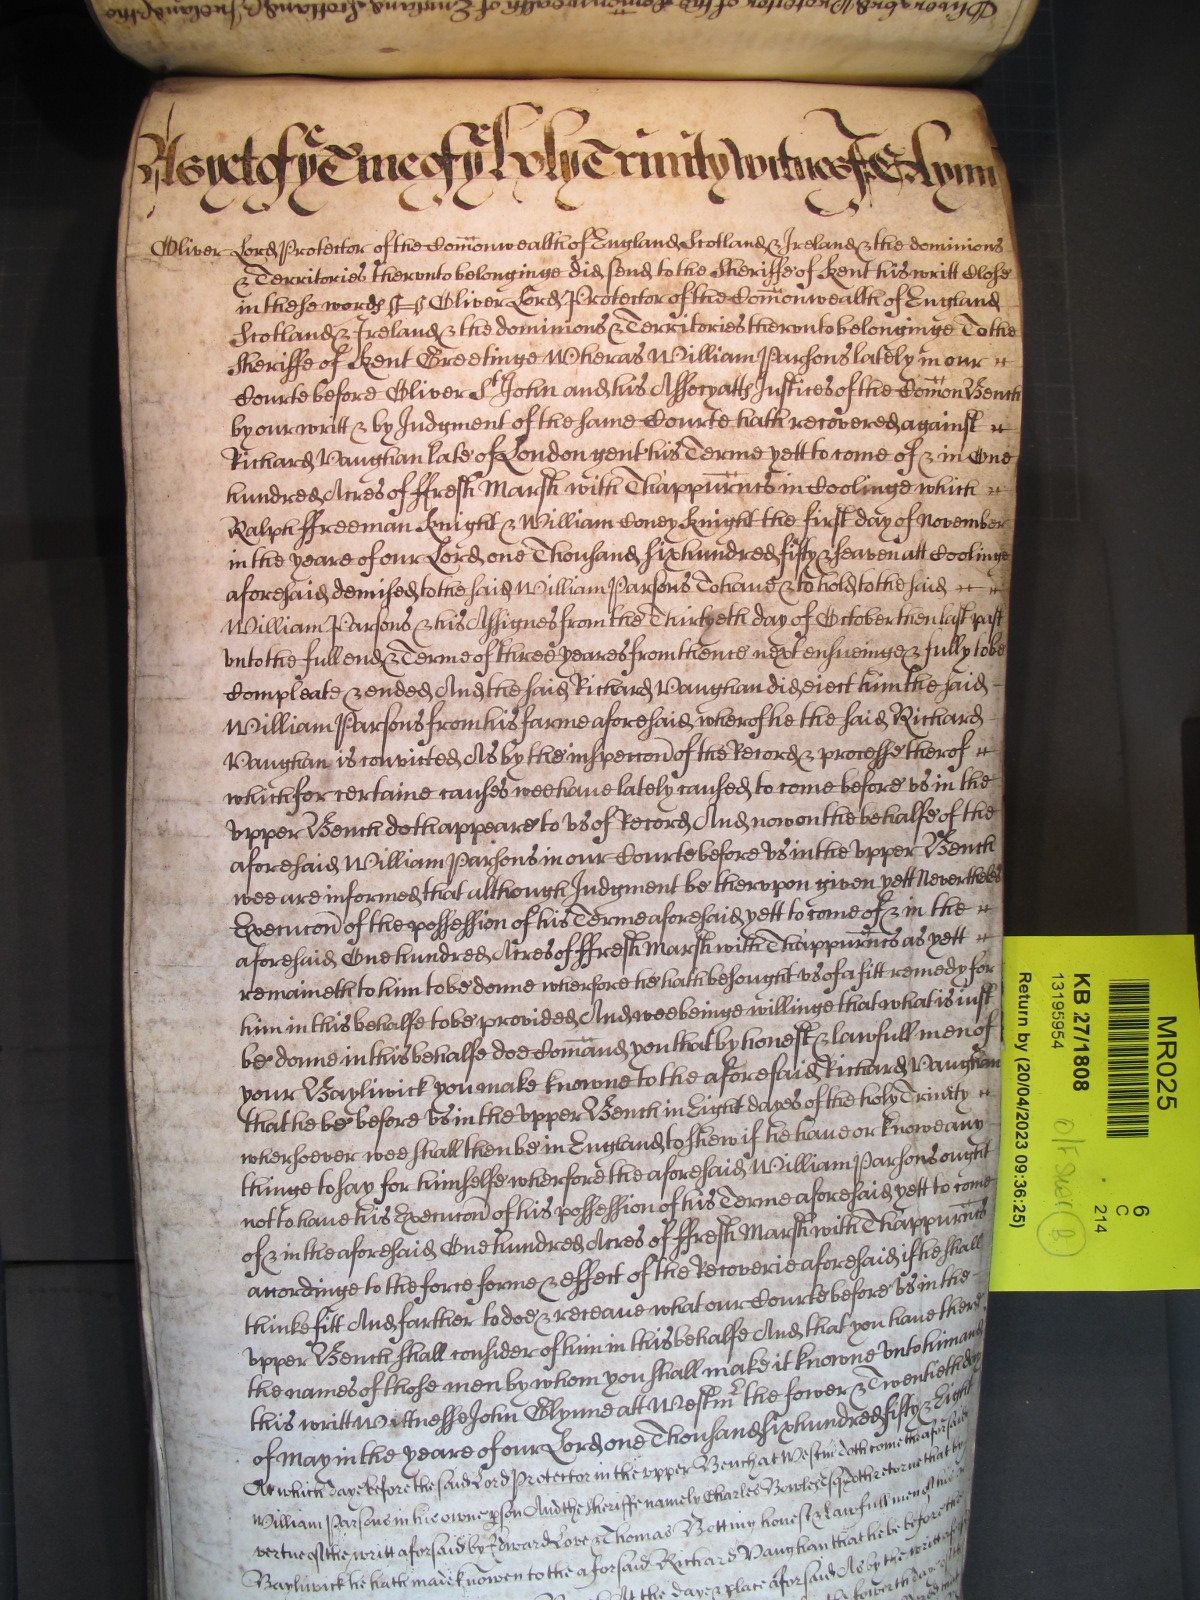 As yet of ye Tme of ye holy Trinity witnes J Glynn
Oliver Lord Protector of the Com̄onwealth of England Scotland & Ireland & the dominions
& Territories therunto belonginge did send to the Sheriffe of Kent his writt Close
in these words ss Oliver Lord Protector of the Com̄onwealth of England
Scotland & Ireland & the dominions & Territories therunto belonginge To the
Sheriffe of Kent Greetinge Wheras William Parsons lately in our
Courte before Oliver St John and his Assocyatts Justices of the Com̄on Bench
by our writt & by Judgment of the same Courte hath recovered against
Richard Vaughan late of London gent his Terme yett to come of & in One
hundred Acres of ffresh Marsh with Thappurtn̄cs in Coolinge which
Ralph ffreeman Knight & William Coney Knight the first day of November
in the yeare of our Lord one Thousand six hundred fifty & seaven att Coolinge
aforesaid demised to the said William Parsons To have & to hold to the said
William Parsons & his Assignes from the Thirtyeth day of October then last past
unto the full end & Terme of three yeares from thence next ensueinge & fully to be
Compleate & ended And the said Richard Vaughan did eiect him the said
William Parsons from his farme aforesaid wherof he the said Richard
Vaughan is convicted As by the inspeccon̄ of the Record & processe therof
which for certaine causes wee have lately caused to come before us in the
upper Bench doth appeare to us of Record And now on the behalfe of the
aforesaid William Parsons in our Courte before us in the upper Bench
wee are informed that although Judgment be therupon given yett Neverthelès
Execucon̄ of the possession of his Terme aforesaid yett to come of & in the
aforesaid One hundred Acres of ffresh Marsh with Thappurtn̄cs as yett
remaineth to him to be donne wherfore he hath besought us of a fitt remedy for
him in this behalfe to be provided And wee beinge willinge that what is iust
be donne in this behalfe doe Com̄and you that by honest & lawfull men of
your Bayliwick you make knowne to the aforesaid Richard Vaughan
that he be before us in the upper Bench in Eight dayes of the holy Trinity
whersoever wee shall then be in England to shew if he have or know any
thinge to say for himselfe wherfore the aforesaid William Parsons ought
not to have his Execucon̄ of his possession of his Terme aforesaid yett to come
of & in the aforesaid One hundred Acres of ffresh Marsh with Thappurtn̄cs
accordinge to the force forme & effect of the Recoverie aforesaid if he shall
thinke fitt And farther to doe & receave what our Courte before us in the
upper Bench shall consider of him in this behalfe And that you have there
the names of those men by whom you shall make it knowne unto him and
this writt Wittnesse John Glynne att Westmr the fower & Twentieth day
of May in the yeare of our Lord one Thousand six hundred fifty & Eight
At which daye before the said Lord Protector in the upper Bench at Westmr doth come the aforsaid
William Parsons in his owne pson And the Sheriffe namely Charles Bowles esqr doth retorne that by
vertue of the writt aforsaid by Edward Love & Thomas Botting honest & Lawfull men of his
Bayliwick he hath made knowen to the aforsaid Richard Vaughan that he be before the
At the daye & place aforsaid As by the writt
the fowerth daye of
MR025
6
C
214
KB 27/1808
13195954
Return by (20/04/2023 09:36:25)